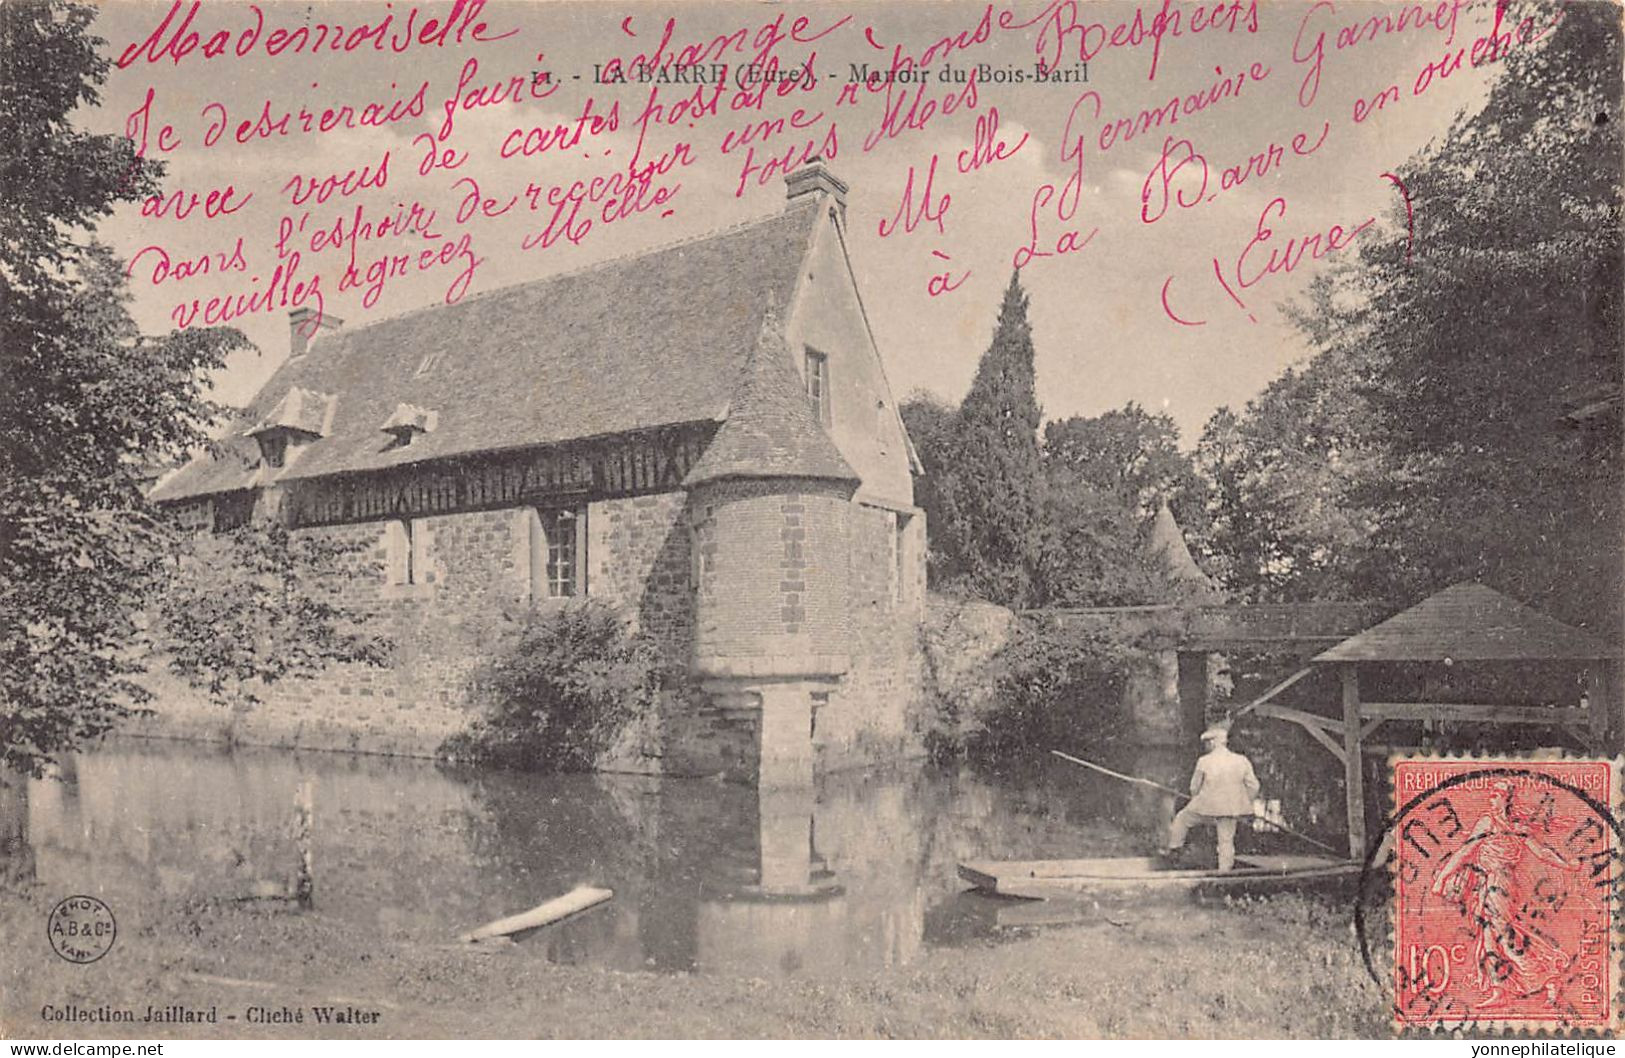 Mademoiselle
Je desirerais faire échange
avec vous de cartes postales
dans l'espoir de recevoir une réponse
veuillez agréez Melle tous Mes Respects
Melle Germaine
à La Barre en ouche
(Eure)
11. - LA BARRE (Eure). - Manoir du Bois-Baril
RÉPUBLIQUE FRANÇAISE
10c
POSTES
LA BARRE
EURE
PHOT.
A.B & Cie
NANCY
Collection Jaillard - Cliché Walter
delcampe.net
yonnephilatelique